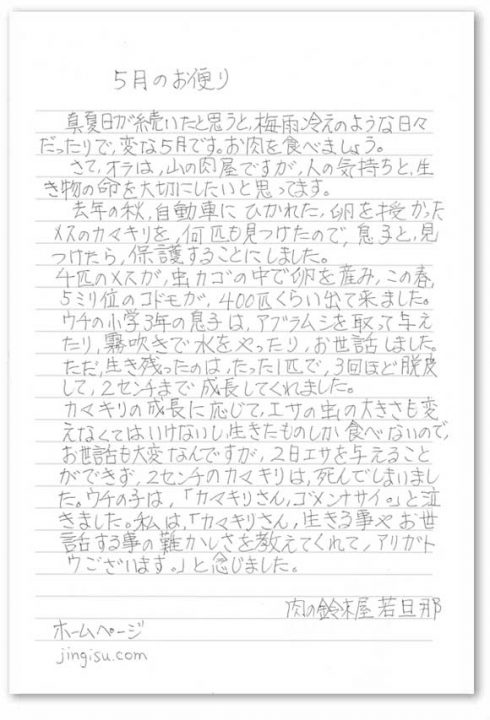 5月のお便り
真夏日が続いたと思うと,梅雨冷えのような日々
だったりで,変な5月です。お肉を食べましょう。
さて,オラは,山の肉屋ですが,人の気持ちと,生
き物の命を大切にしたいと思ってます。
去年の秋,自動車に ひかれた,卵を授かった
メスのカマキリを,何匹も見つけたので,息子と,見
つけたら,保護することにしました。
4匹のメスが,虫カゴの中で卵を産み,この春,
5ミリ位のコドモが,400匹くらい出て来ました。
ウチの小学3年の息子は,アブラムシを取って与え
たり,霧吹きで水をやったり,お世話しました。
ただ,生き残ったのは,たった1匹で,3回ほど脱皮
して,2センチまで成長してくれました。
カマキリの成長に応じて,エサの虫の大きさも変
えなくてはいけないし,生きたものしか食べないので,
お世話も大変なんですが,2日エサを与えること
ができず,2センチのカマキリは,死んでしまいまし
た。ウチの子は,「カマキリさん,ゴメンナサイ。」と泣
きました。私は,「カマキリさん,生きる事や お世
話する事の難かしさを教えてくれて,アリガト
ウございます。」と念じました。
肉の鈴木屋 若旦那
ホームページ
jingisu.com